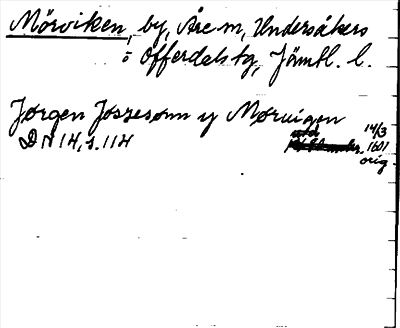 Mörviken, by, Åre sn, Undersåkers
o Offerdals tg, Jämtl. l.
Jørgen Joszesønn y Møruigen
DN 14, s. 114
14/3
1601
orig.